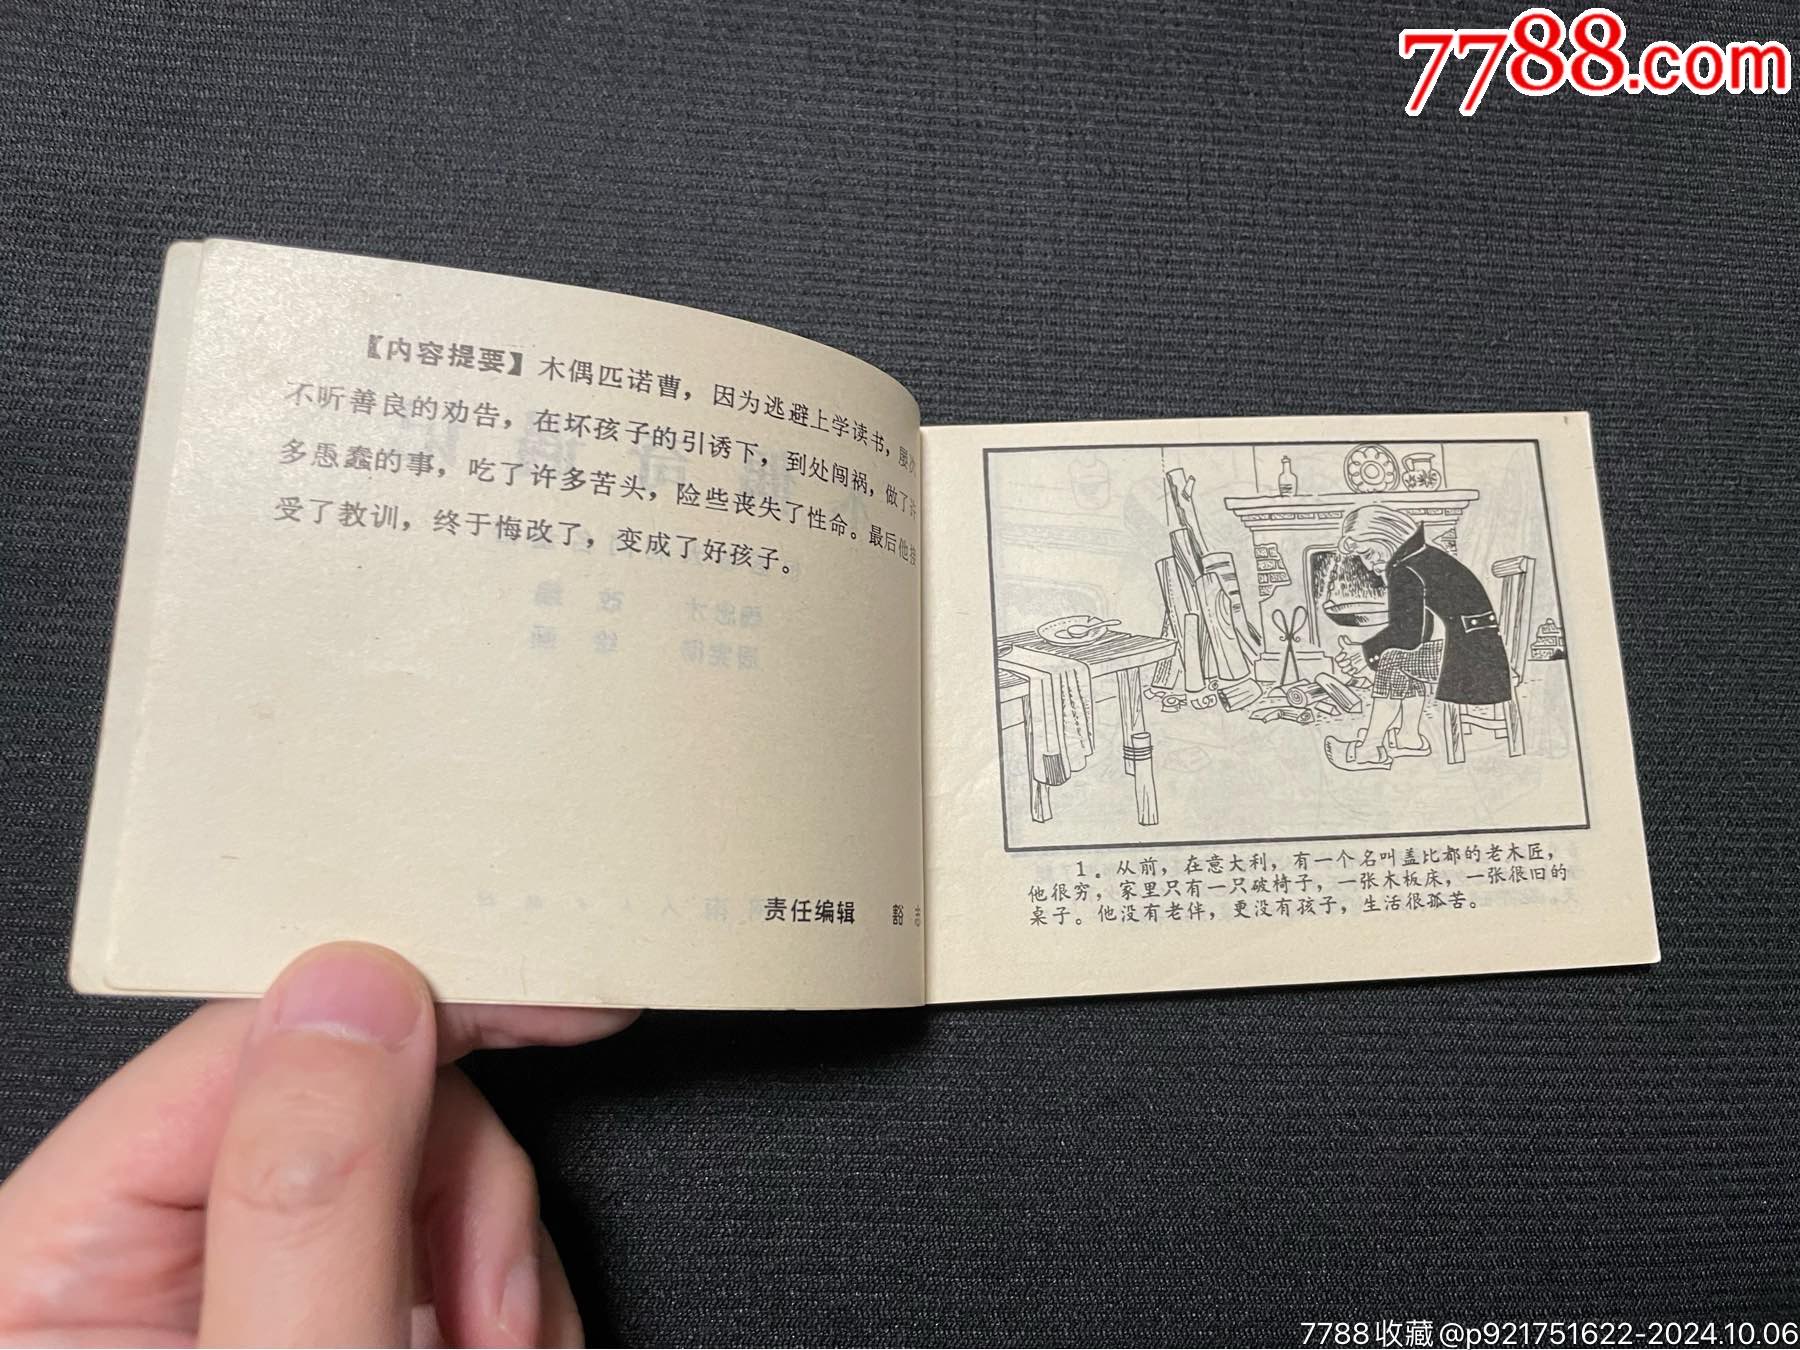 7788.com
【内容提要】木偶匹诺曹，因为逃避上学读书，屡次
不听善良的劝告，在坏孩子的引诱下，到处闯祸，做了许
多愚蠢的事，吃了许多苦头，险些丧失了性命。最后他接
受了教训，终于悔改了，变成了好孩子。
责任编辑 豁
1。从前，在意大利，有一个名叫盖比都的老木匠，
他很穷，家里只有一只破椅子，一张木板床，一张很旧的
桌子。他没有老伴，更没有孩子，生活很孤苦。
7788收藏@p921751622-2024.10.06